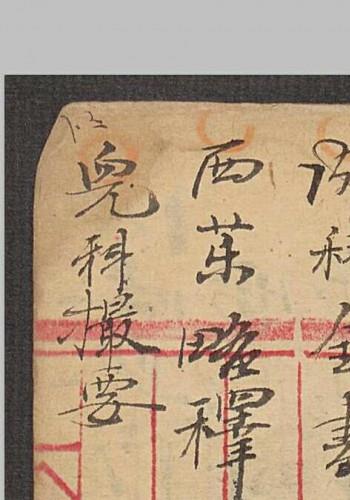 科全書
西藥略釋
兒科撮要